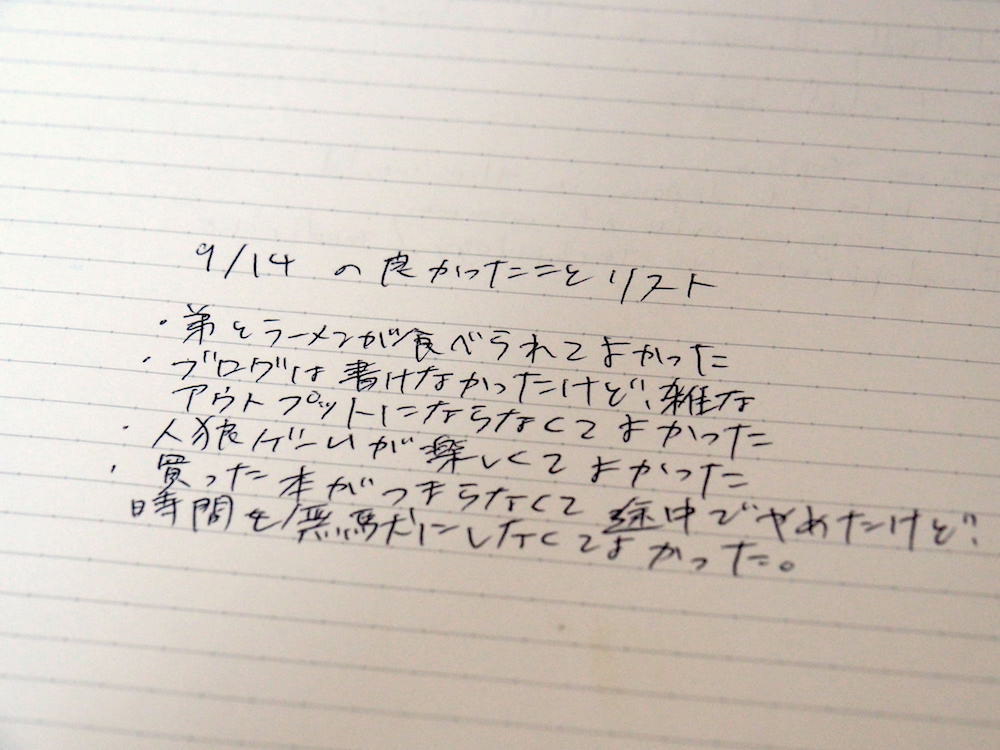 9/14 の良かったことリスト
・弟とラーメンが食べられてよかった
・ブログは書けなかったけど、雑な
アウトプットにならなくてよかった
・人狼ゲームが楽しくてよかった
・買った本がつまらなくて途中でやめたけど、
時間を無駄にしなくてよかった。